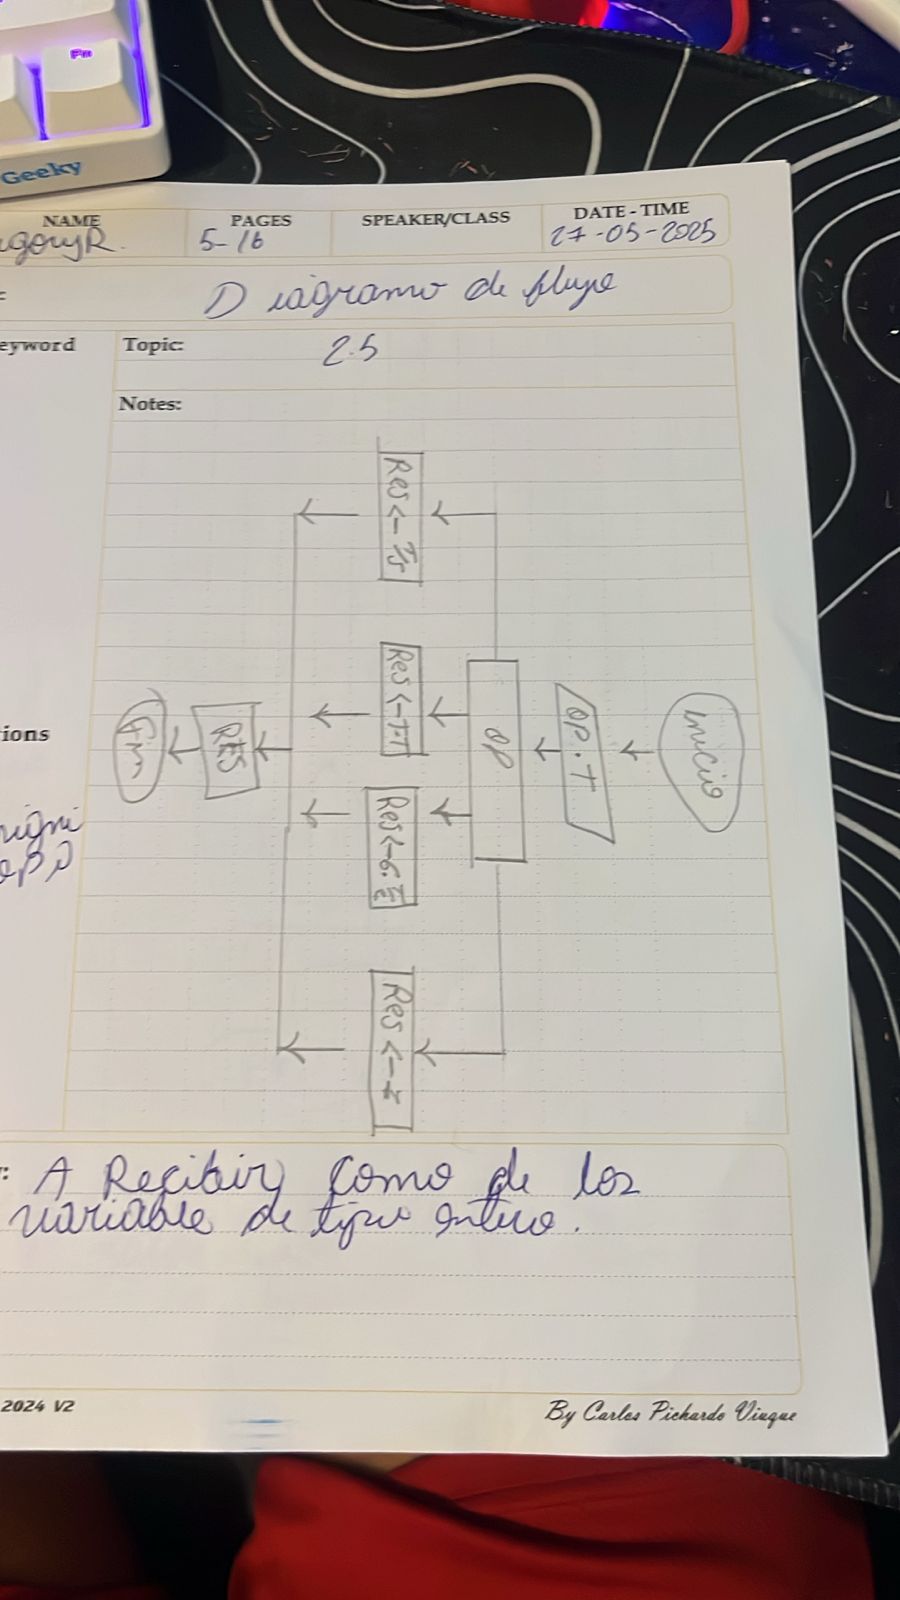 Fn
Geeky
NAME
PAGES
SPEAKER/CLASS
DATE-TIME
goryR.
5-16
27-05-2025
Diagramo de flupe
eyword
Topic:
2.5
Notes:
inicio
OP.T
OP
Res<-
Res<-
Res<-
Res<-
RES
Fin
ions
: A Recibir como de los
variable de type
2024 V2
By Carlos Pichardo Viuque